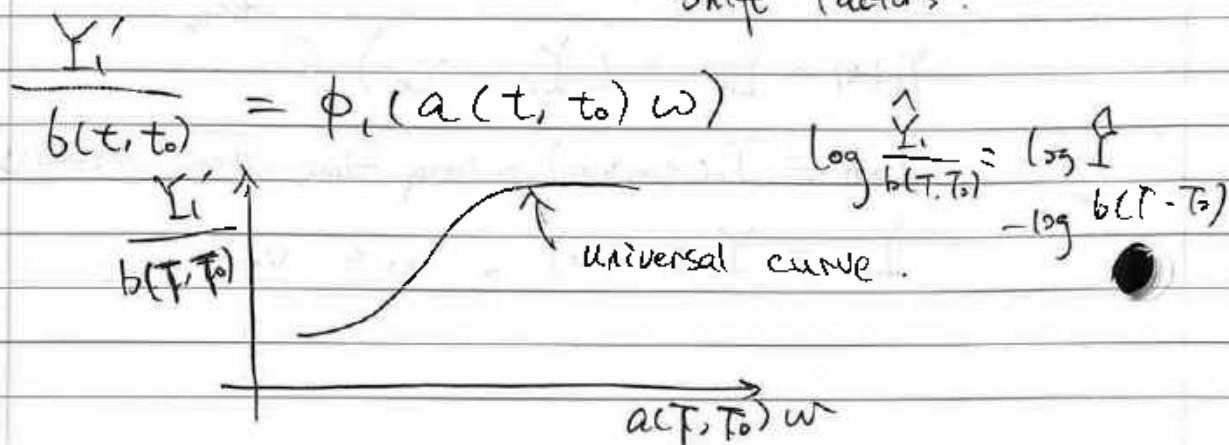 shift factors.
Y₁′ / b(t, t₀) = φ₁(a(t, t₀)ω)
log Ŷ₁ / b(T, T₀) = log Ŷ
- log b(T - T₀)
Y₁′ / b(T, T₀)
universal curve.
a(T, T₀)ω